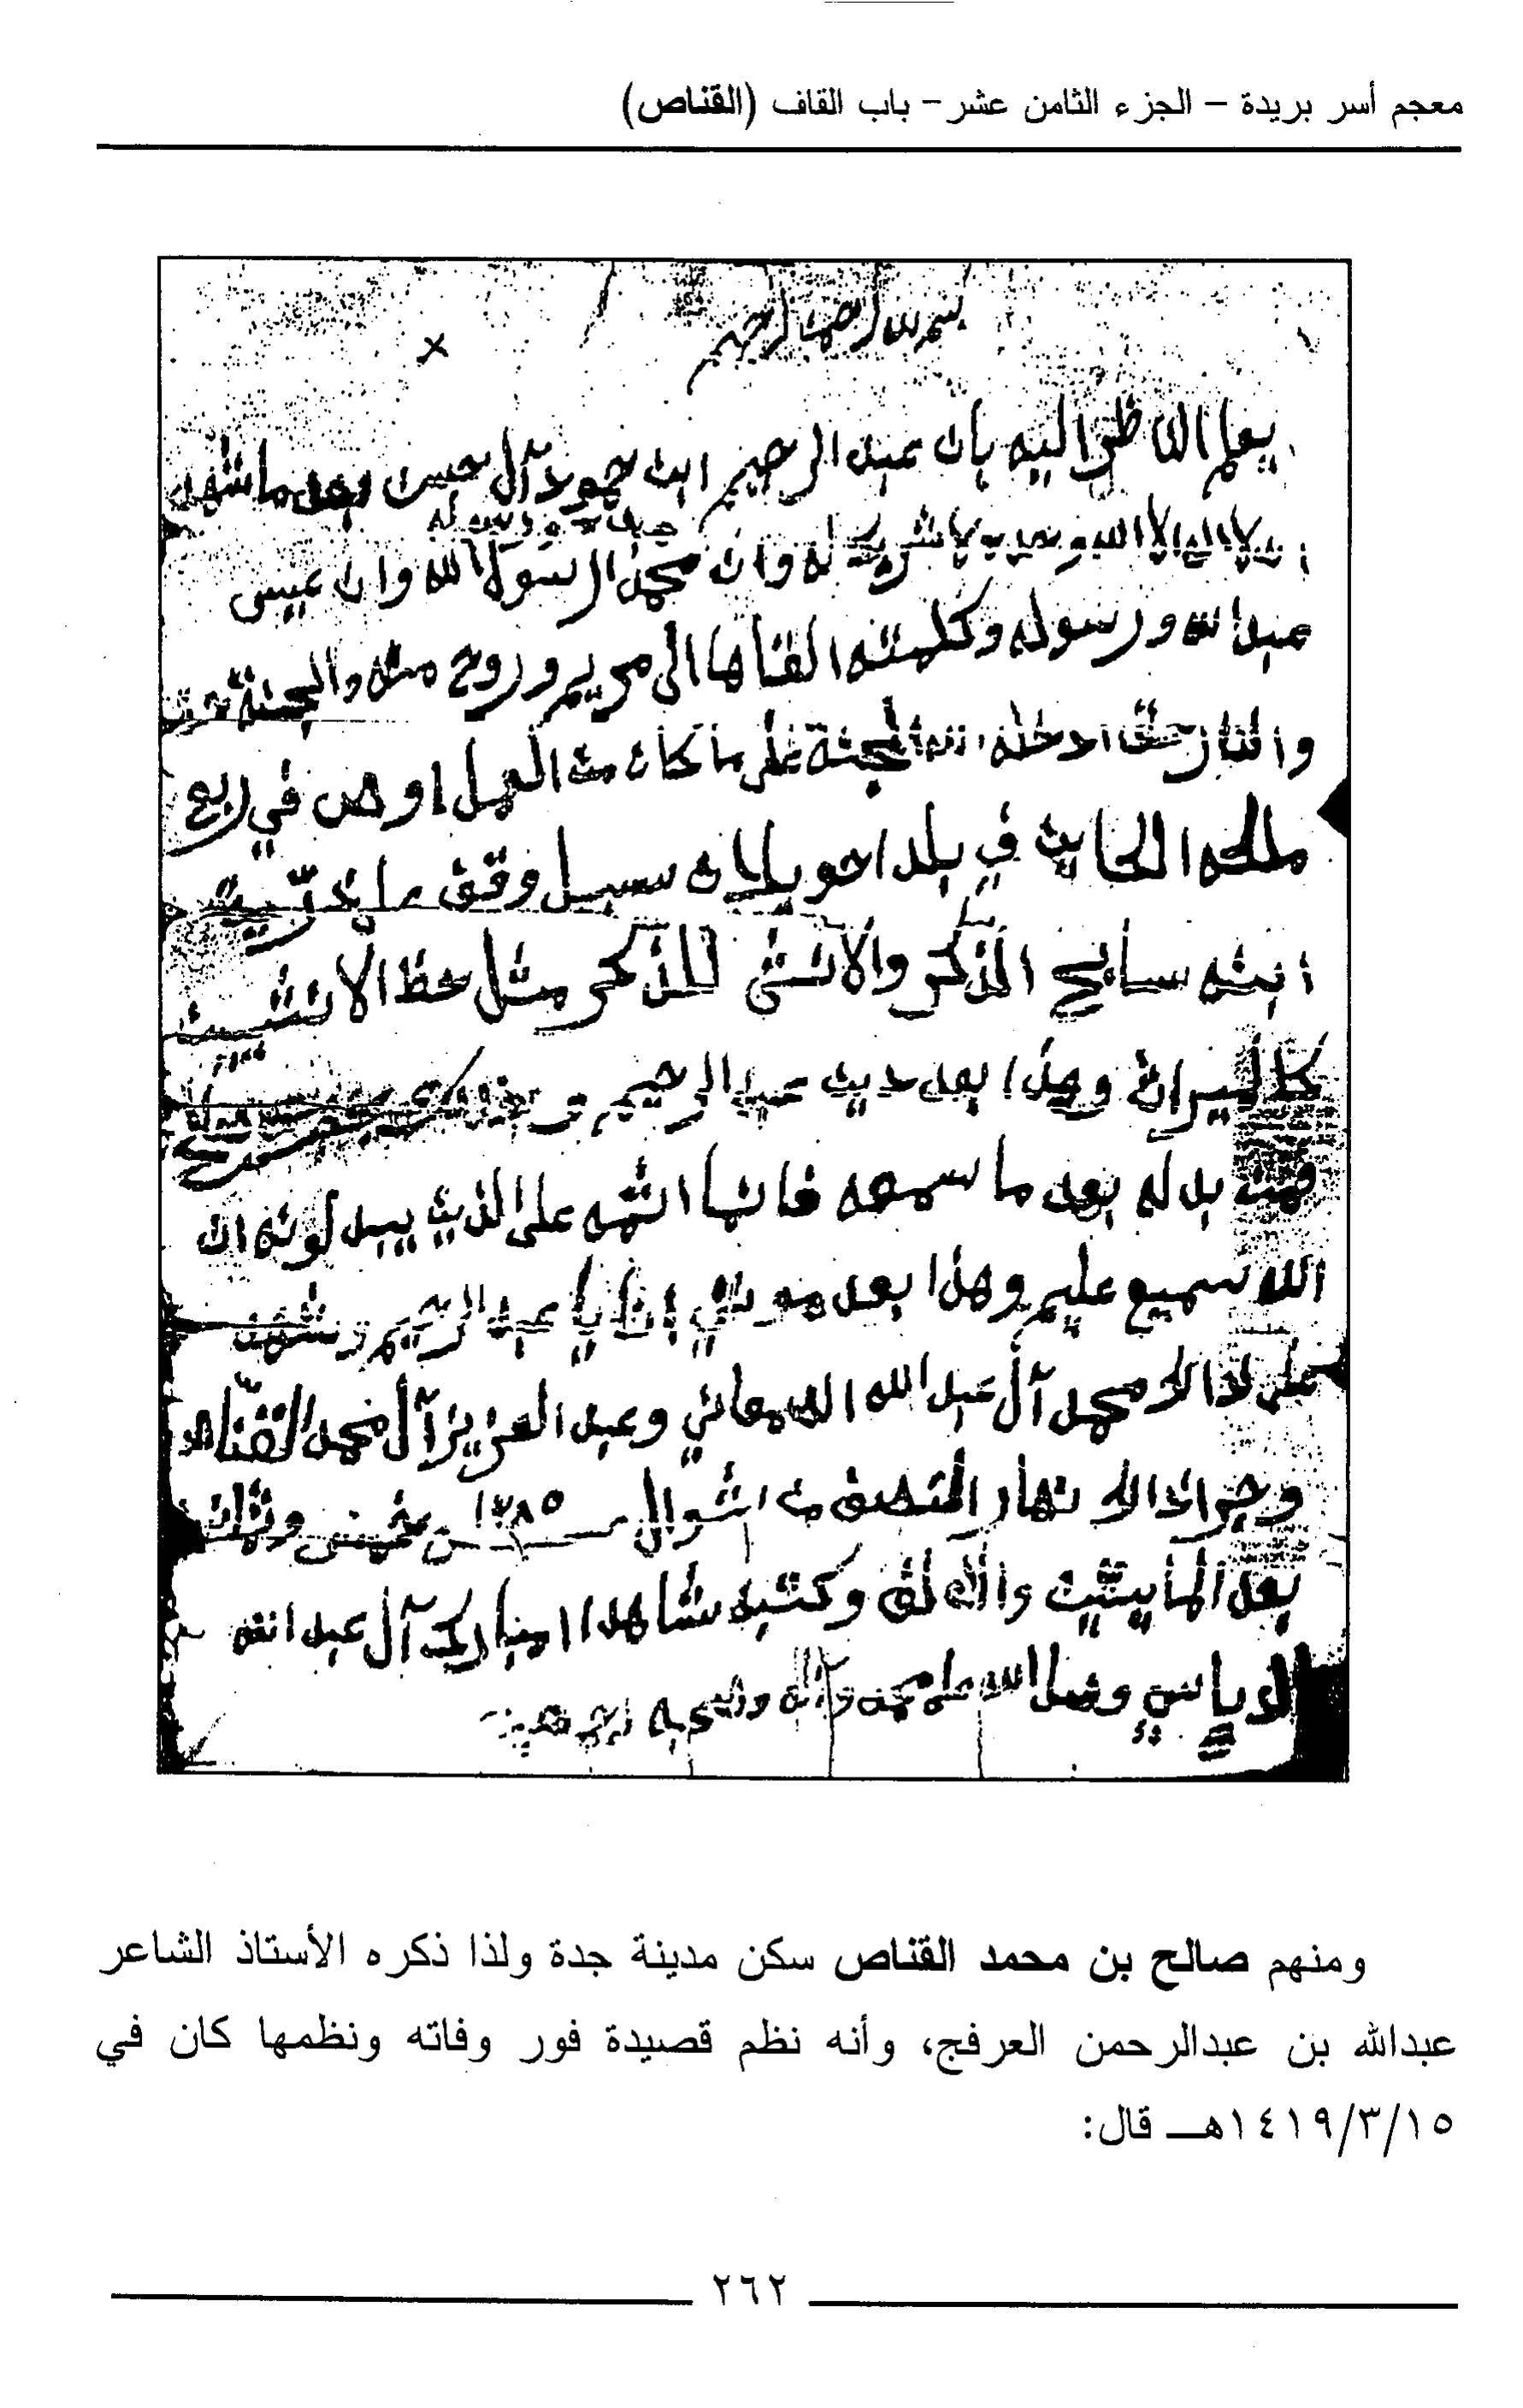 معجم أسر بريدة – الجزء الثامن عشر – باب القاف (القناص)
بسم الله الرحمن الرحيم
يعلم الناظر اليه بان عبد الرحيم ابن حمود آل حسن بعد ما شهد
ان لا اله الا الله وحده لا شريك له وان محمدا رسول الله وان عيسى
عبد الله ورسوله وكلمته القاها الى مريم وروح منه والجنة حق
والنار حق ادخله الله الجنة على ما كان من العمل اوصى في ربع
ملكه الحايـ في بلد سبيل وقف
ابنه سايح الذكر والانثى للذكر مثل حظ الانثيين
كالميراث وهذا بعد دين عبد الرحيم
فمن بدله بعد ما سمعه فانما اثمه على الذين يبدلونه ان
الله سميع عليم وهذا بعد موتي انا يا عبد الرحيم وشهد
على ذالك محمد آل عبد الله وعبد العزيز آل محمد القناص
وجرا ذالك نهار النصف من شوال ١٢٨٥ سنة خمس وثمان
بعد المايتين والالف وكتبه شاهدا مبارك آل عبد الله
الدباسي وصل الله على محمد واله وصحبه اجمعين
ومنهم صالح بن محمد القناص سكن مدينة جدة ولذا ذكره الأستاذ الشاعر
عبدالله بن عبدالرحمن العرفج، وأنه نظم قصيدة فور وفاته ونظمها كان في
١٤١٩/٣/١٥هـ قال:
٢٦٢